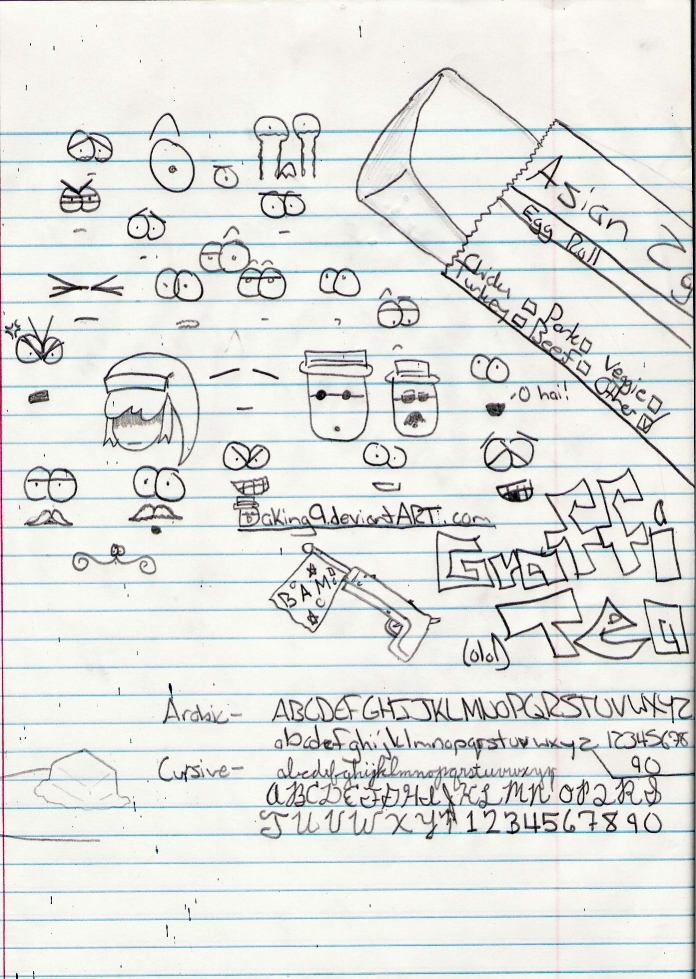 Asian
Egg Roll
Chicken Pork Veggie
Turkey Beef Other
O hai!
aking9.deviantART.com
Graffiti
BAM
(olol)
Arabic- ABCDEFGHIJKLMNOPQRSTUVWXYZ
abcdefghijklmnopqrstuvwxyz 12345678
90
Cursive- abcdefghijklmnopqrstuvwxyz
ABCDEFGHIJKLMNOPQRS
TUVWXYZ 1234567890